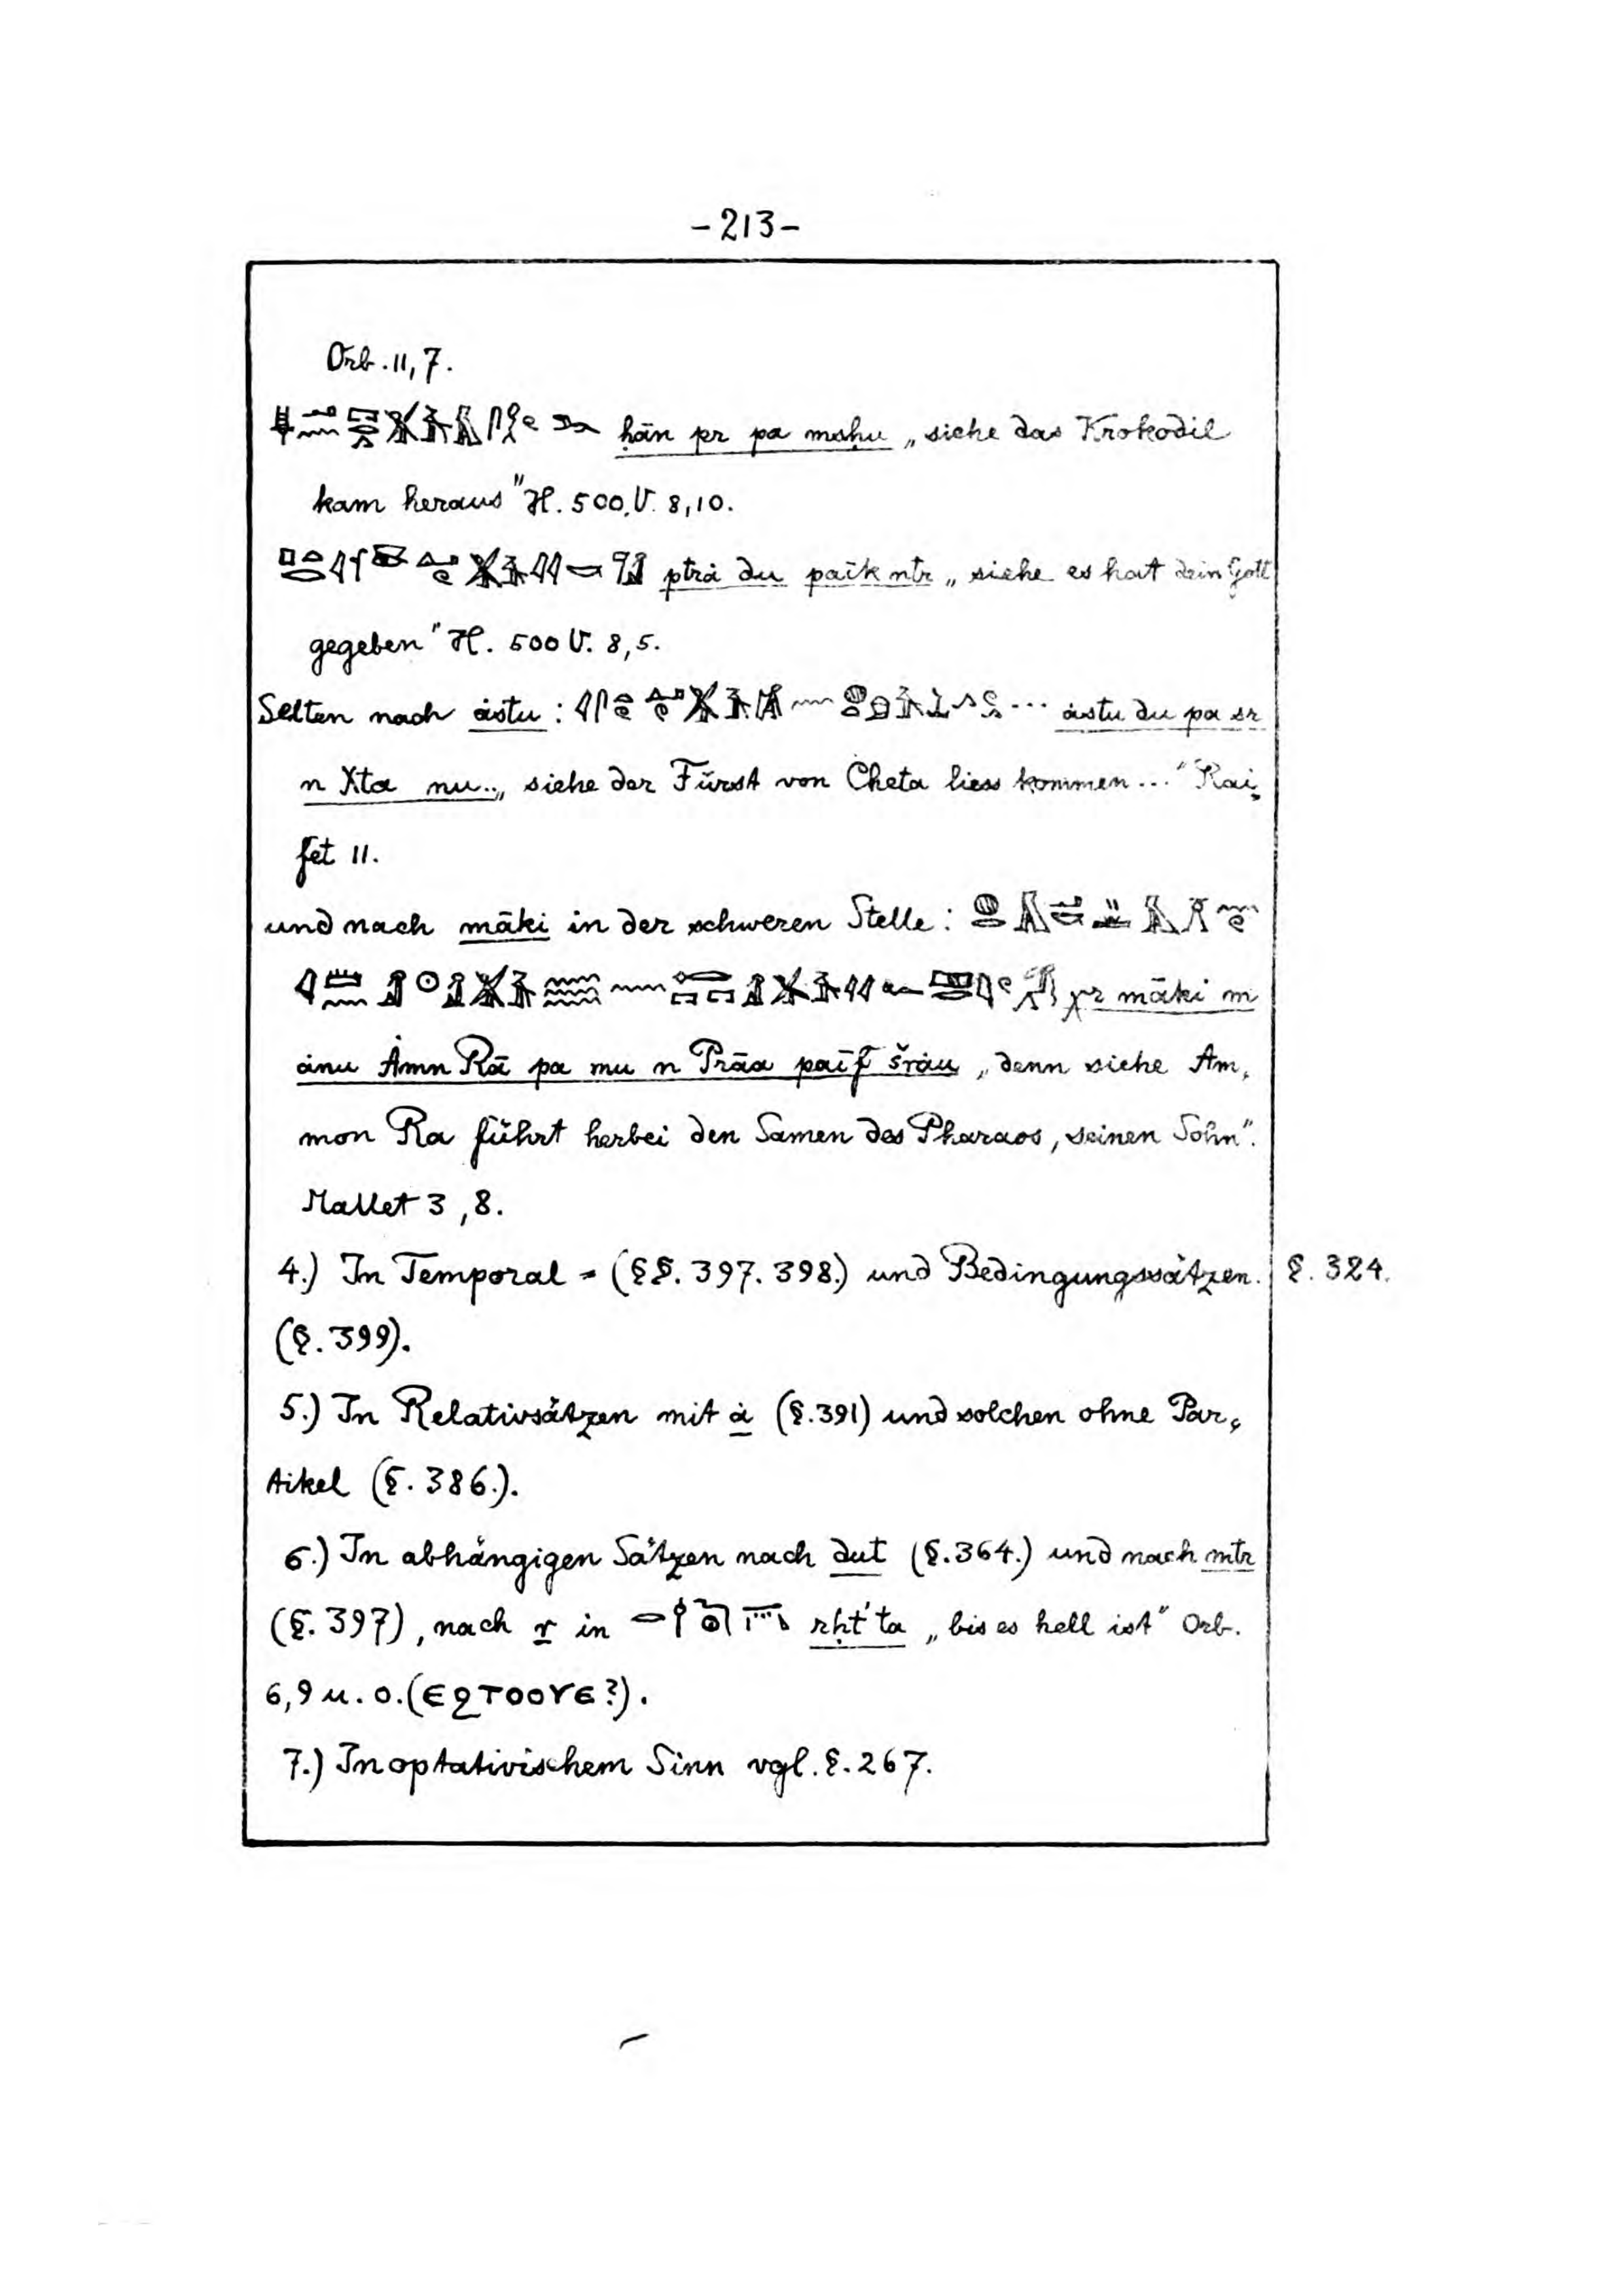 -213-
Orb. 11, 7.
ḥān pr pa msḥu „siehe das Krokodil
kam heraus" H. 500. V. 8, 10.
ptrȧ du paīk ntr „siehe es hat dein Gott
gegeben" H. 500 V. 8, 5.
Selten nach ȧstu : ... ȧstu du pa sr
n Xta nu.. „siehe der Fürst von Cheta liess kommen ..." Rai⸗
fet 11.
und nach māki in der schweren Stelle :
χr māki m
ȧnu Ȧmn Rā pa mu n Prāa paīf šrȧu „denn siehe Am⸗
mon Ra führt herbei den Samen des Pharaos, seinen Sohn".
Mallet 3, 8.
4.) In Temporal = (§§. 397. 398.) und Bedingungssätzen. §. 324.
(§. 399).
5.) In Relativsätzen mit ȧ (§. 391) und solchen ohne Par⸗
tikel (§. 386.).
6.) In abhängigen Sätzen nach dut (§. 364.) und nach mtr
(§. 397), nach r in rḥt' ta „bis es hell ist" Orb.
6, 9 u. o. (ⲉϩⲧⲟⲟⲩⲉ?).
7.) In optativischem Sinn vgl. §. 267.